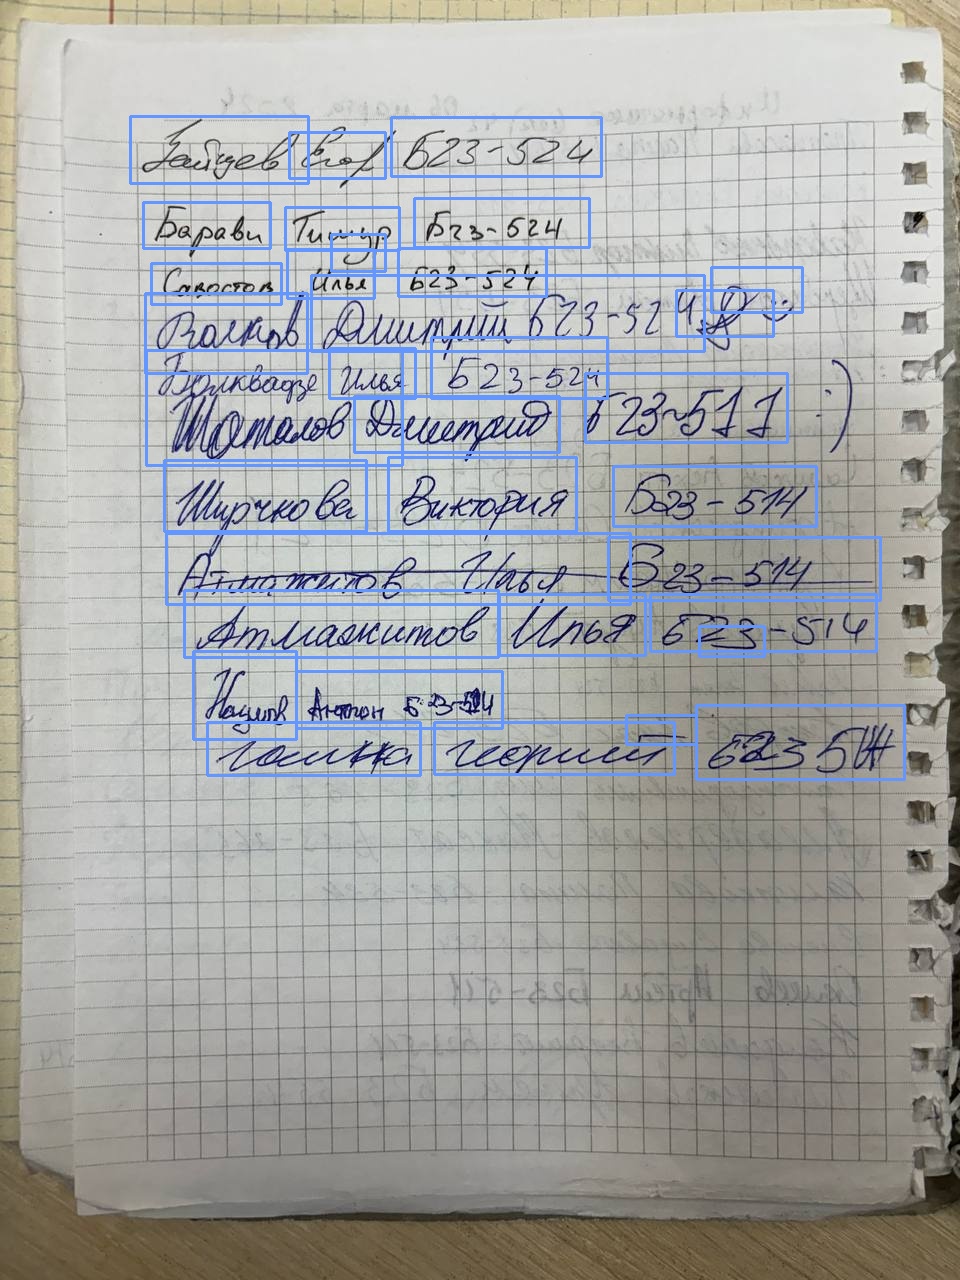 Зайцев Егор Б23-524
Барави Тимур Б23-524
Савостов Илья Б23-524
Волков Дмитрий Б23-524
Болквадзе Илья Б23-524
Шаталов Дмитрий Б23-511 :)
Ширчкова Виктория Б23-514
Атмажитов Илья Б23-514
Атмажитов Илья Б23-514
Наумов Антон Б23-514
Георгий Б23 514